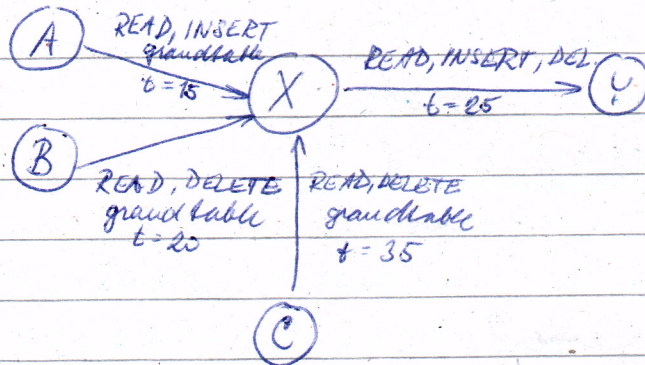 A
READ, INSERT
grandtable
t=15
X
READ, INSERT, DEL.
t=25
Y
B
READ, DELETE
grandtable
t=20
READ, DELETE
grandtable
t=35
C